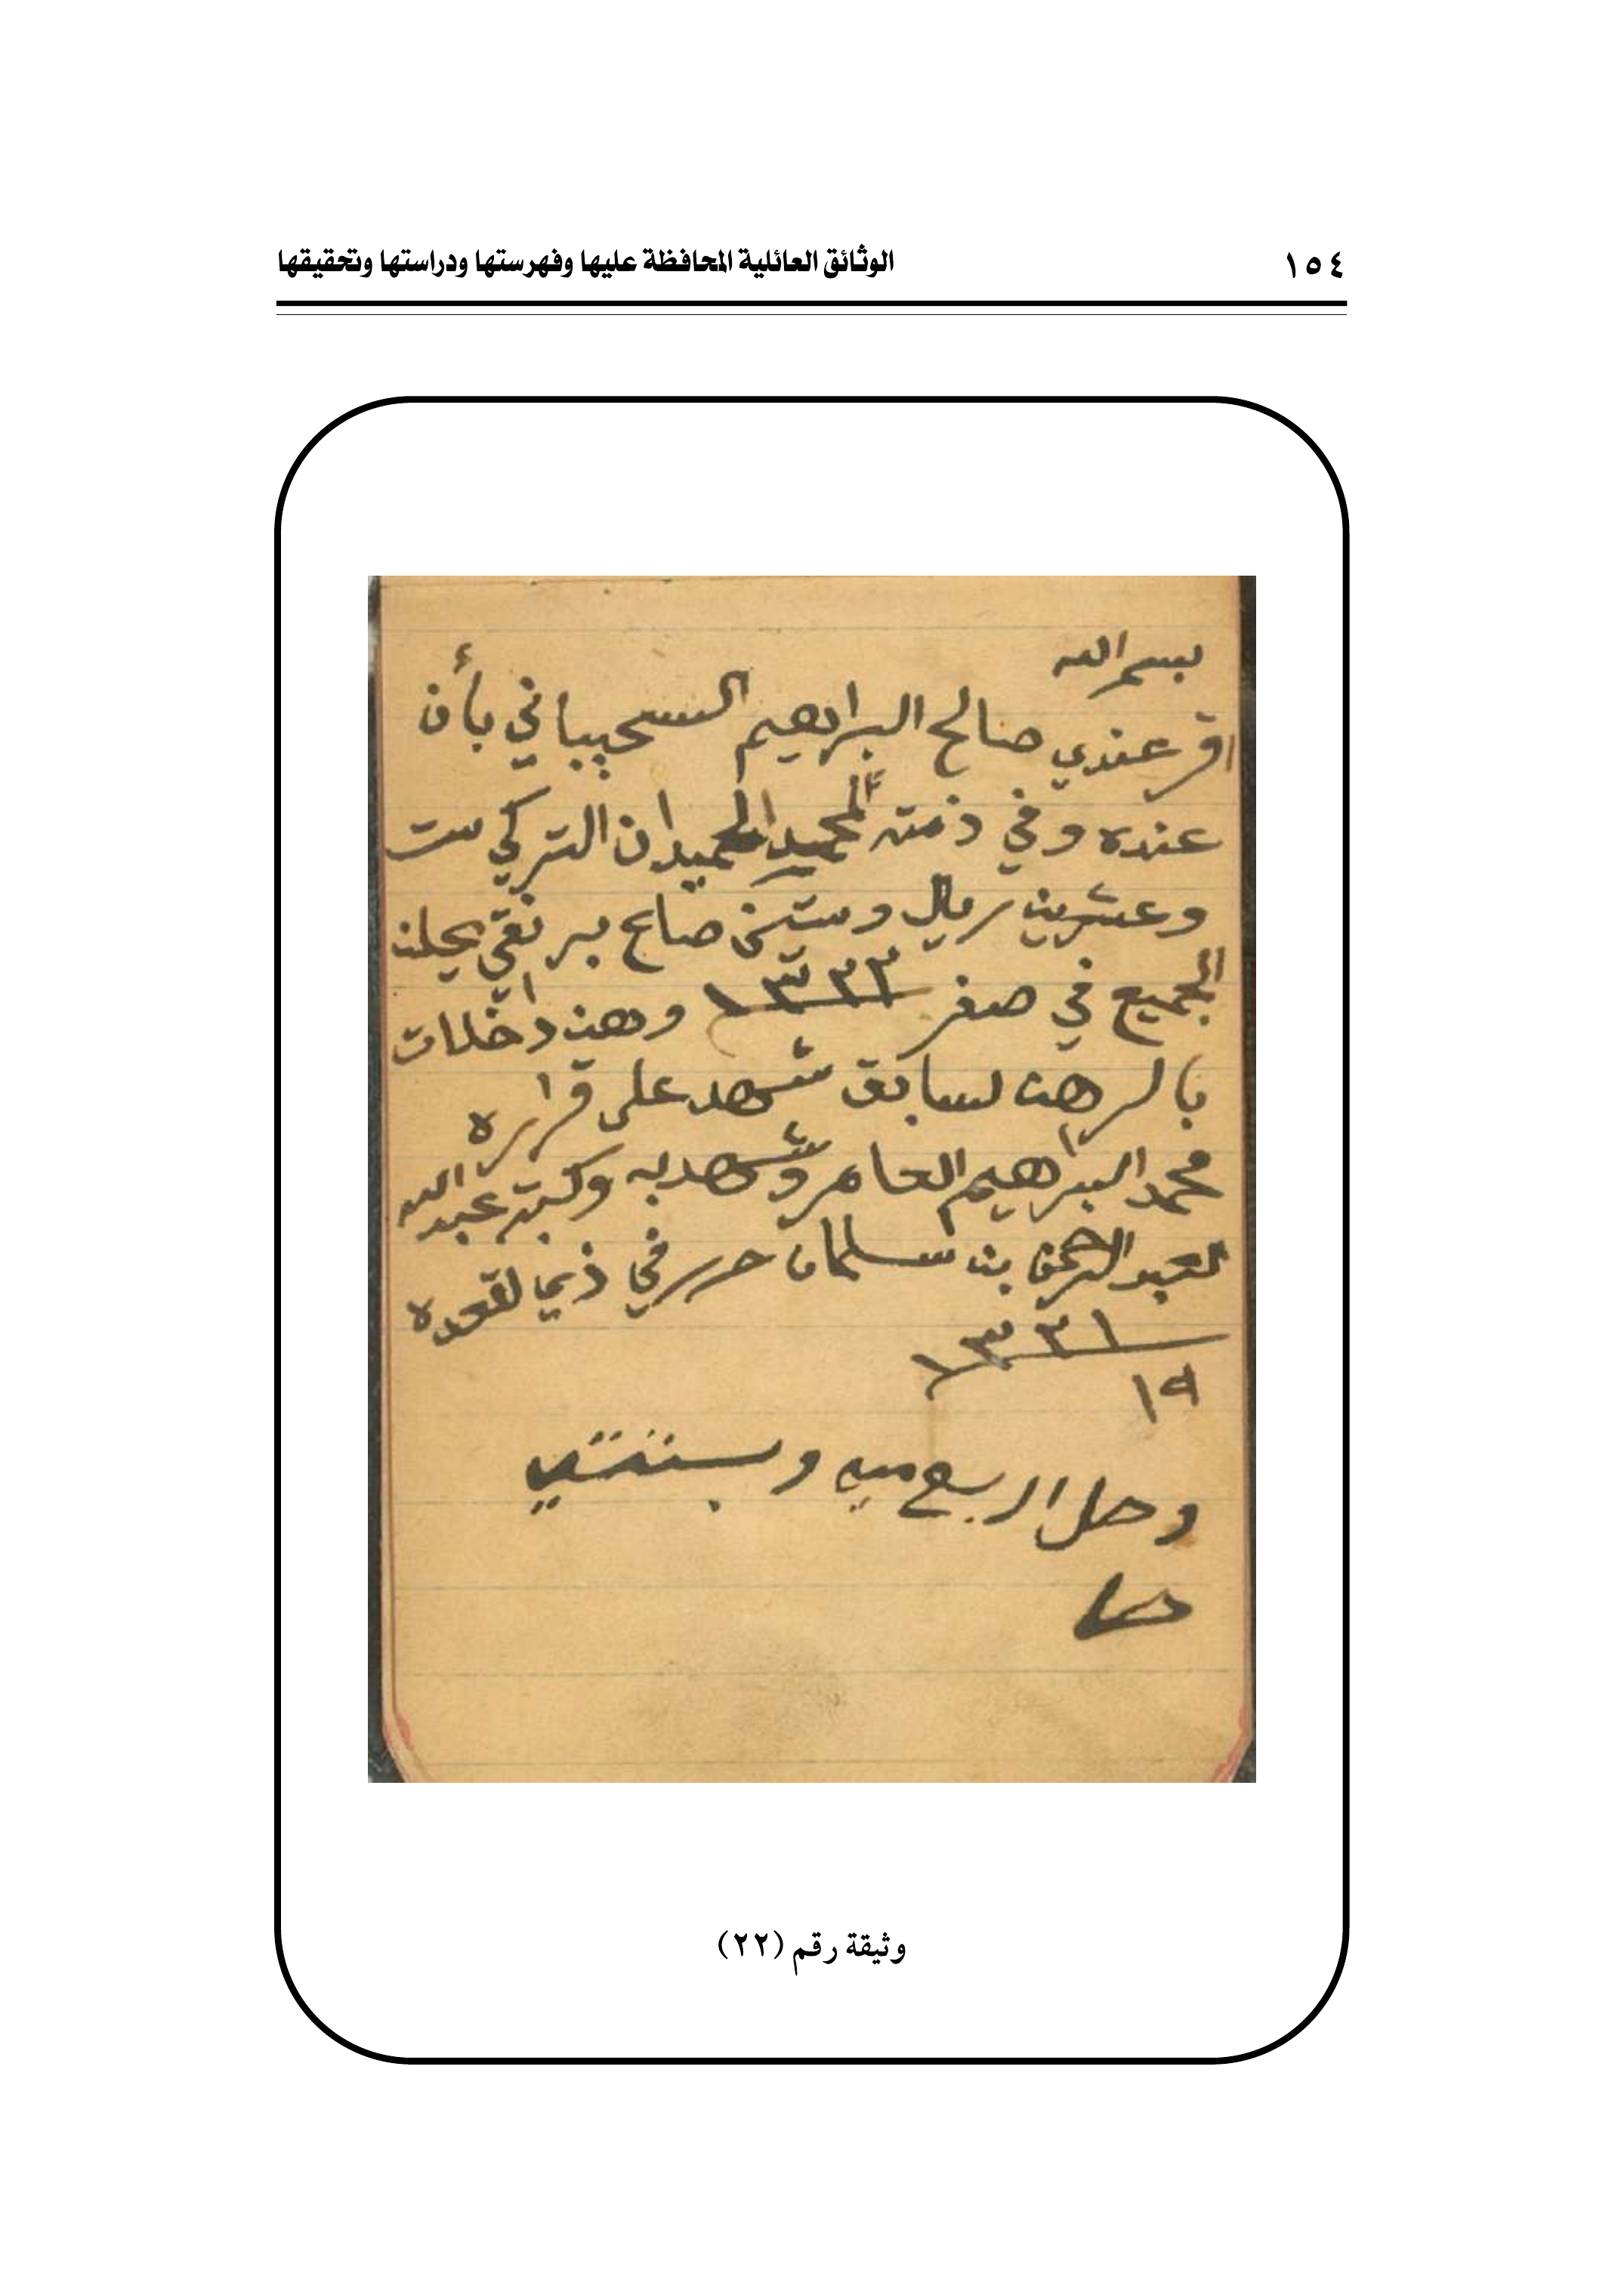 ١٥٤
الوثائق العائلية المحافظة عليها وفهرستها ودراستها وتحقيقها
بسم الله
اقر عندي صالح البراهيم السحيباني بأن
عنده وفي ذمته الحميدان التركي ست
وعشرين ريال وستين صاع بر نقي يحلن
الجميع في صفر ١٣٣٢ وهن داخلات
بالرهن لسابق شهد على قراره
محمد البراهيم العامر وشهد به وكتبه عبد الله
العبد الرحمن بن سلمان حرر في ذي لقعده
١٣٣١
١٩
وثيقة رقم (٢٢)